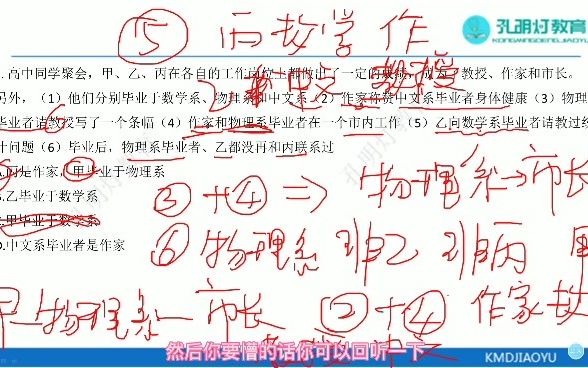 ⑤ 丙 数学 作
孔明灯教育
KONGMINGDENGJIAOYU
. 高中同学聚会，甲、乙、丙在各自的工作岗位上都做出了一定的成绩，成为了教授、作家和市长。
另外，（1）他们分别毕业于数学系、物理系和中文系（2）作家称赞中文系毕业者身体健康（3）物理
毕业者请教授写了一个条幅（4）作家和物理系毕业者在一个市内工作（5）乙向数学系毕业者请教过统
计问题（6）毕业后，物理系毕业者、乙都没再和丙联系过
A.丙是作家，甲毕业于物理系
B.乙毕业于数学系
C.甲毕业于数学系
D.中文系毕业者是作家
2 非 中文 教授
③+④ ⇒ 物理系→市长
⑥ 物理系 非乙 非丙 甲
甲—物理系—市长 ②+④ 作家 数
然后你要懵的话你可以回听一下
KMDJIAOYU